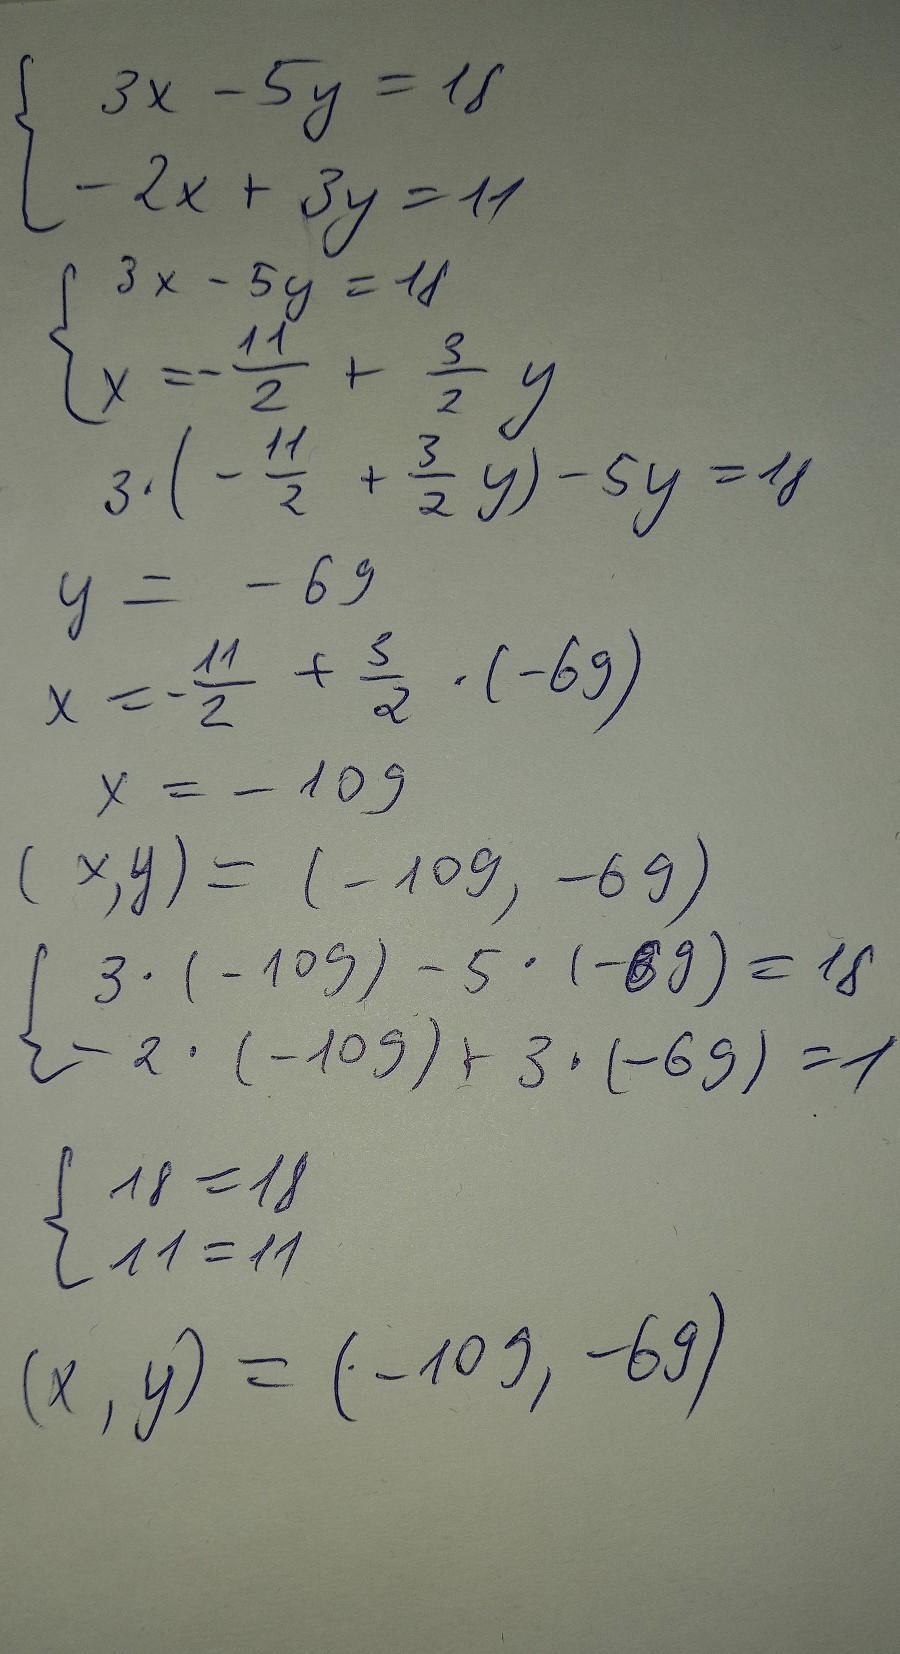 { 3x - 5y = 18
- 2x + 3y = 11
{ 3x - 5y = 18
x = - 11/2 + 3/2 y
3 · (- 11/2 + 3/2 y) - 5y = 18
y = - 69
x = - 11/2 + 3/2 · (-69)
x = - 109
(x,y) = (-109, -69)
{ 3 · (-109) - 5 · (-69) = 18
- 2 · (-109) + 3 · (-69) = 1
{ 18 = 18
11 = 11
(x, y) = (-109, -69)